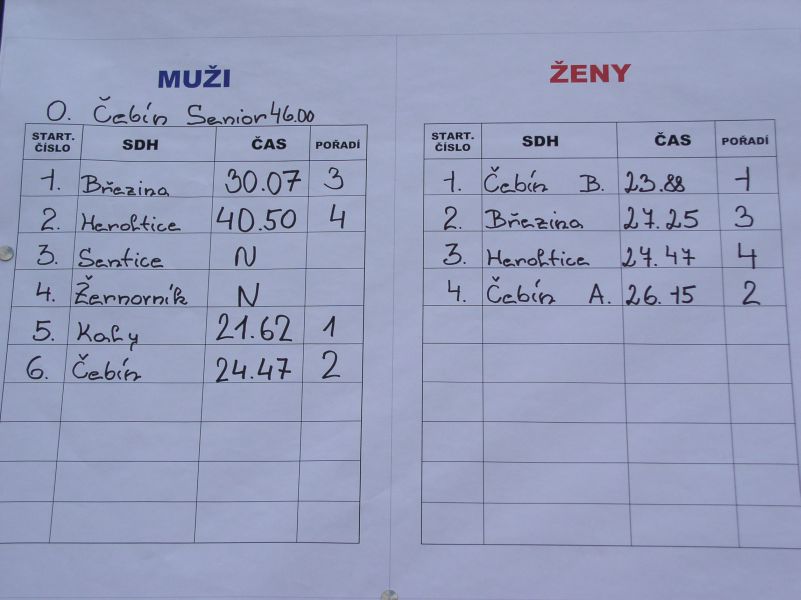 MUŽI
O. Čebín Senior 46.00
START. ČÍSLO SDH ČAS POŘADÍ
1. Březina 30.07 3
2. Heroltice 40.50 4
3. Sentice N
4. Žernovník N
5. Kaly 21.62 1
6. Čebín 24.47 2
ŽENY
START. ČÍSLO SDH ČAS POŘADÍ
1. Čebín B. 23.88 1
2. Březina 27.25 3
3. Heroltice 27.47 4
4. Čebín A. 26.15 2